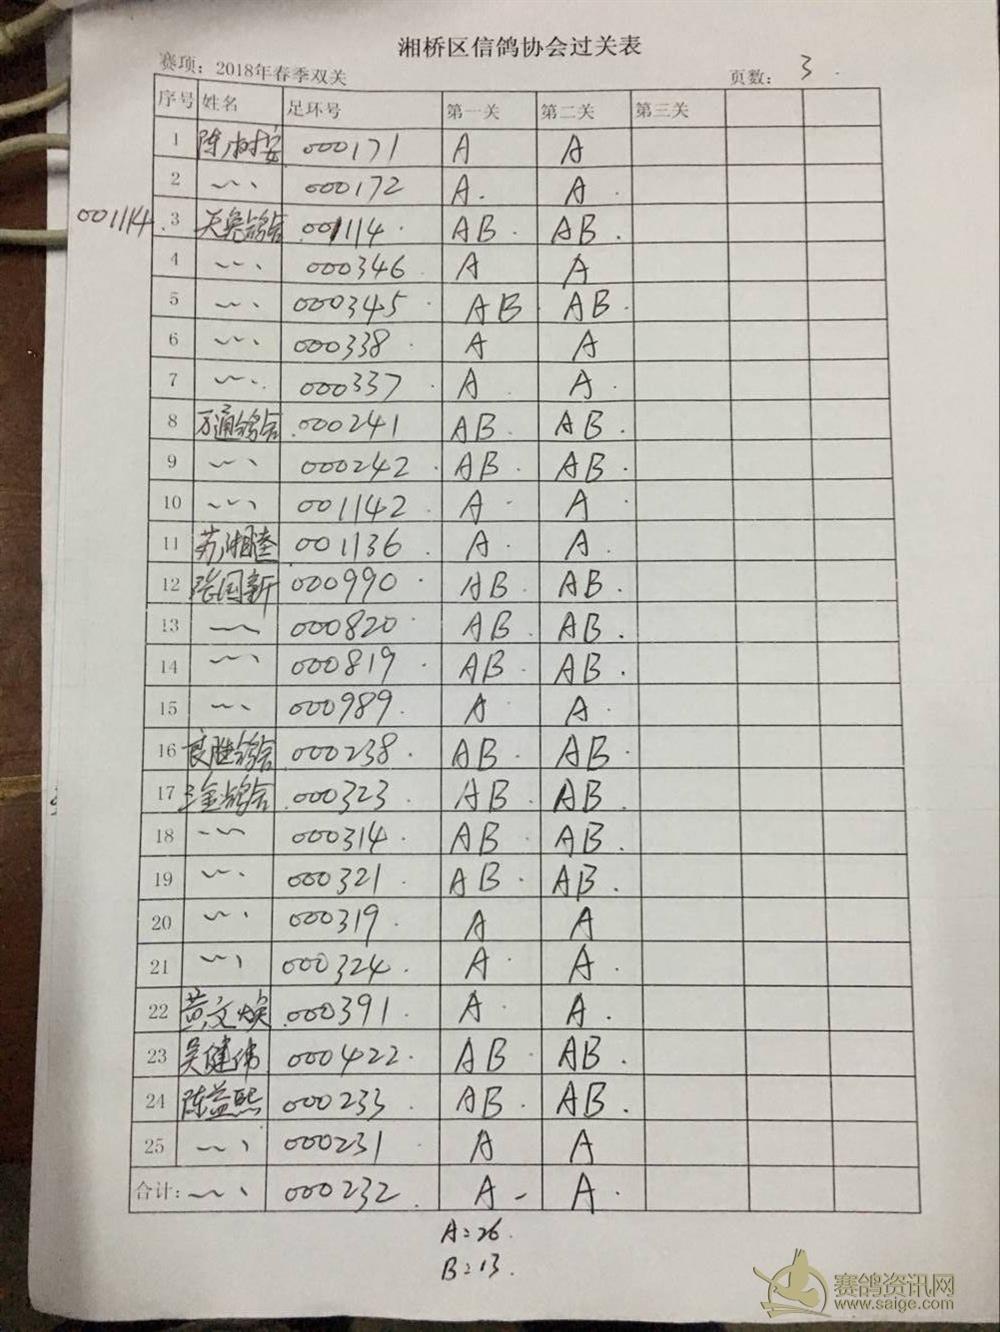 湘桥区信鸽协会过关表
赛项：2018年春季双关 页数： 3
序号 姓名 足环号 第一关 第二关 第三关
1 陈树安 000171 A A
2 〃 000172 A. A
001114. 3 天亮鸽舍 001114 AB AB
4 〃 000346 A A
5 〃 000345 AB AB
6 〃 000338 A A
7 〃 000337 A A.
8 万通鸽舍 000241 AB AB.
9 〃 000242 AB AB.
10 〃 001142 A A
11 苏湘 001136 A A.
12 张国新 000990 AB AB.
13 〃 000820 AB AB.
14 〃 000819 AB AB.
15 〃 000989 A A.
16 良胜鸽舍 000238 AB AB.
17 三金鸽舍 000323 AB AB.
18 〃 000314 AB AB.
19 〃 000321 AB AB.
20 〃 000319 A A
21 〃 000324 A A.
22 黄文焕 000391 A A.
23 吴健伟 000422 AB AB.
24 陈益熙 000233 AB AB.
25 〃 000231 A A
合计： 〃 000232 A A.
A=26.
B=13.
赛鸽资讯网
www.saige.com